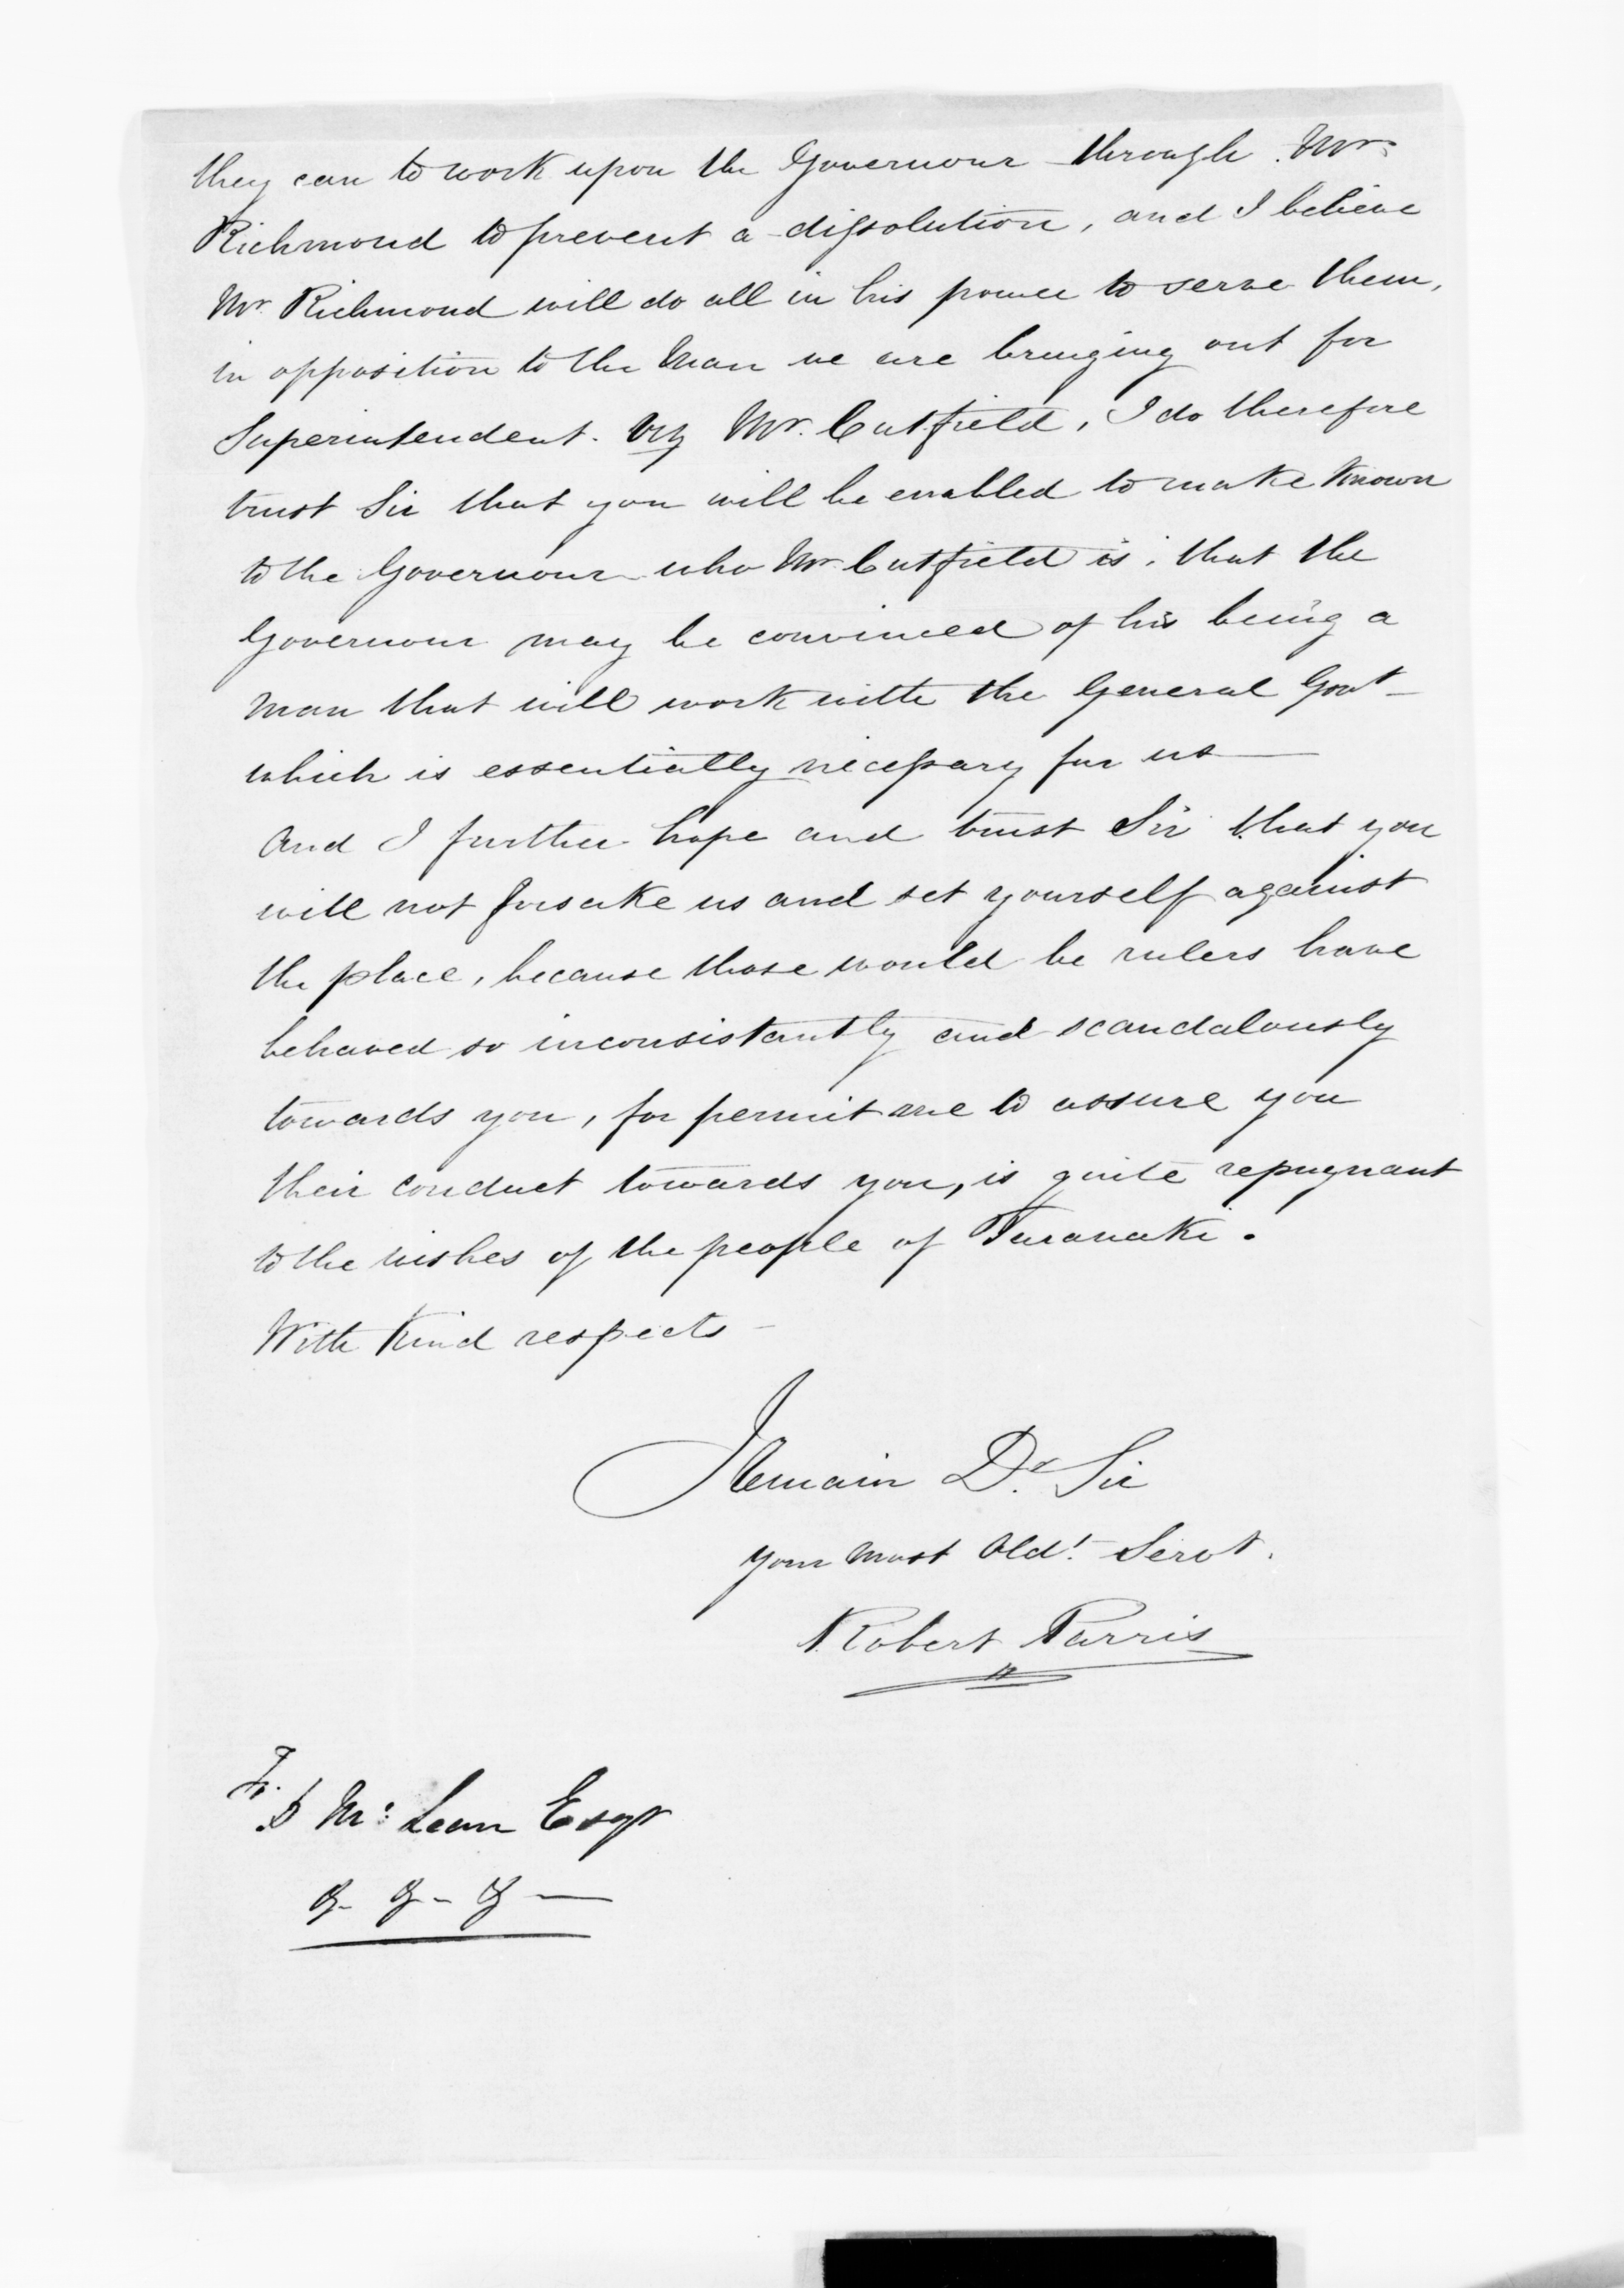 they can to work upon the Governour through Mr.
Richmond to prevent a dissolution, and I believe
Mr. Richmond will do all in his power to serve them,
in opposition to the Man we are bringing out for
Superintendent. viz Mr. Cutfield, I do therefore
trust Sir that you will be enabled to make known
to the Governour who Mr Cutfield is, that the
Governour may be convinced of his being a
man that will work with the General Govt
which is essentially necessary for us —
And I further hope and trust Sir that you
will not forsake us and set yourself against
the place, because those would be rulers have
behaved so inconsistantly and scandalously
towards you, for permit me to assure you
their conduct towards you, is quite repugnant
to the wishes of the people of Taranaki.
With Kind respects —
I Remain Dr. Sir
your most Obdt. Servt.
Robert Parris
To.
D Mc: Lean Esqr
&- &- & —